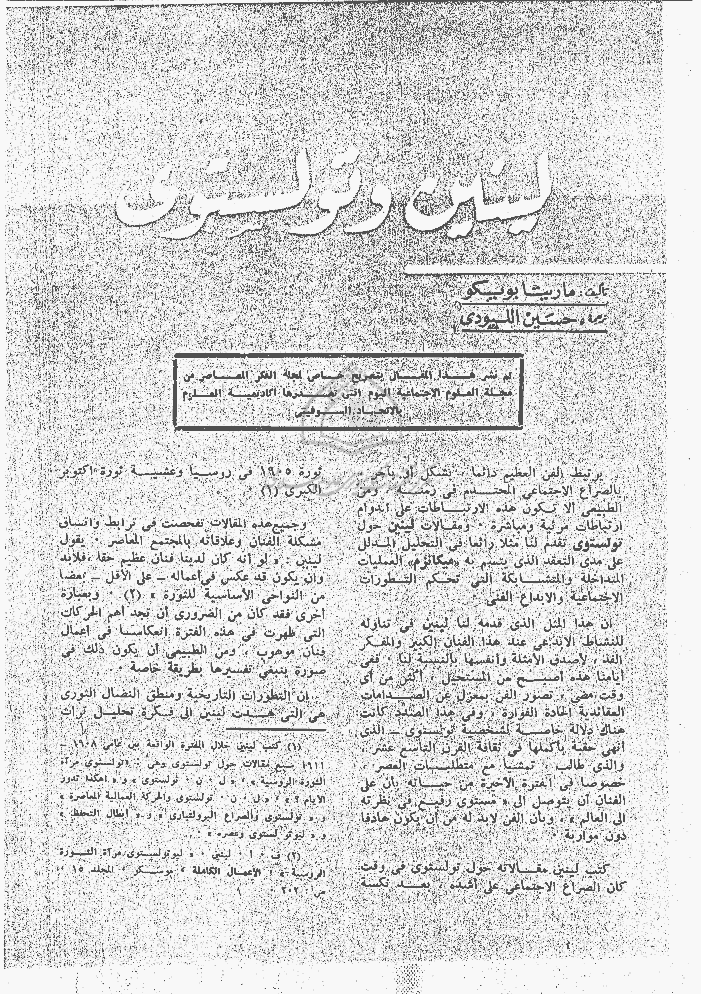 لينين وتولستوى
تأليف: ماريتا بونيكو
ترجمة: حسين اللبودى
تم نشر هذا المقال بتصريح خاص لمجلة الفكر المعاصر من
مجلة العلوم الاجتماعية اليوم التى تصدرها أكاديمية العلوم
بالاتحاد السوفيتى
يرتبط الفن العظيم دائما ، بشكل أو بآخر ،
بالصراع الاجتماعى المحتدم فى زمنه ، ومن
الطبيعى ألا تكون هذه الارتباطات على الدوام
ارتباطات مرئية ومباشرة ٠ ومقالات لينين حول
تولستوى تقدم لنا مثلا رائعا فى التحليل المدلل
على مدى التعقد الذى يتسم به «ميكانزم» العمليات
المتداخلة والمتشابكة التى تحكم التطورات
الاجتماعية والابداع الفنى ٠
ان هذا المثل الذى قدمه لنا لينين فى تناوله
للنشاط الابداعى عند هذا الفنان الكبير والمفكر
الفذ ، لأصدق الأمثلة وأنفسها بالنسبة لنا ٠ ففى
أيامنا هذه أصبح من المستحيل ، أكثر من أى
وقت مضى ، تصور الفن بمعزل عن الصدامات
العقائدية الحادة الفوارة ، وفى هذا الصدد كانت
هناك دلالة خاصة لشخصية تولستوى ــ الذى
أنهى حقبة بأكملها فى ثقافة القرن التاسع عشر ،
والذى طالب ، تمشيا مع متطلبات العصر ،
خصوصا فى الفترة الأخيرة من حياته بأن على
الفنان أن يتوصل الى « مستوى رفيع فى نظرته
الى العالم » ، وبأن الفن لابد له من أن يكون هادفا
دون مواربة ٠
كتب لينين مقالاته حول تولستوى فى وقت
كان الصراع الاجتماعى على أشده ، بعد نكسة
ثورة ١٩٠٥ فى روسيا وعشية ثورة اكتوبر
الكبرى (١) ٠
وجميع هذه المقالات تفحصت فى ترابط واتساق
مشكلة الفنان وعلاقاته بالمجتمع المعاصر ٠ يقول
لينين : « لو أنه كان لدينا فنان عظيم حقا ، فلابد
وأن يكون قد عكس فى أعماله ــ على الأقل ــ بعضا
من النواحى الأساسية للثورة » (٢) ٠ وبعبارة
أخرى فقد كان من الضرورى أن تجد أهم الحركات
التى ظهرت فى هذه الفترة انعكاسا فى أعمال
فنان موهوب ، ومن الطبيعى أن يكون ذلك فى
صورة ينبغى تفسيرها بطريقة خاصة ٠
ان التطورات التاريخية ومنطق النضال الثورى
هى التى هدت لينين الى فكرة تحليل تراث
(١) كتب لينين خلال الفترة الواقعة بين عامى ١٩٠٨ ــ
١٩١١ سبع مقالات حول تولستوى وهى : «تولستوى مرآة
الثورة الروسية » ، « ل ٠ ن ٠ تولستوى » و « أهكذا تدور
الأيام ؟ » « ل ٠ ن ٠ تولستوى والحركة العمالية المعاصرة »
و « تولستوى والصراع البروليتارى » و « أبطال التحفظ »
و « ليو تولستوى وعصره » ٠
(٢) ف ٠ أ ٠ لينين ٠ « ليو تولستوى مرآة الثورة
الروسية » ٠ الأعمال الكاملة ٠ موسكو ٠ المجلد ١٥ ،
ص ٢٠٢ ٠